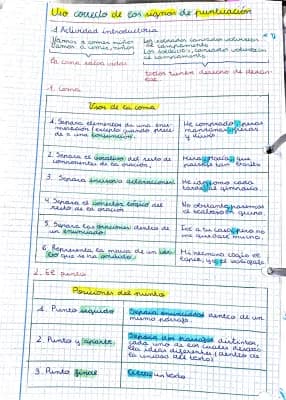 Uso correcto de los signos de puntuación
Actividad introductoria
Vamos a comer niños
Vamos a comer, niños
Los soldados cansados volvieron
al campamento
Los soldados, cansados, volvieron
al campamento
La coma salva vidas
todos tenían
1. Coma
Usos de la coma
1. Separa elementos de una enu-
meración (excepto cuando prece-
de a una
He comprado peras
manzanas, peras
y
2. Separa el vocativo del resto de
componentes de la oración.
Mira, que
3. Separa incisos o aclaraciones
He ido, como cada
tarde, al gimnasio.
4. Separa el conector lógico del
resto de la oración
No obstante,
5. Separa las oraciones dentro de
un enunciado.
Fui a tu casa, pero no
me quedaré mucho.
6. Representa la marca de un ver-
bo que se ha omitido.
Mi hermano
2. El punto
Posiciones del punto
1. Punto seguido
Separa enunciados dentro de un
mismo párrafo.
2. Punto y aparte
Separa dos párrafos distintos,
cada uno de los cuales desarro-
lla ideas diferentes (dentro de
la unidad del texto)
3. Punto final
Cierra un texto